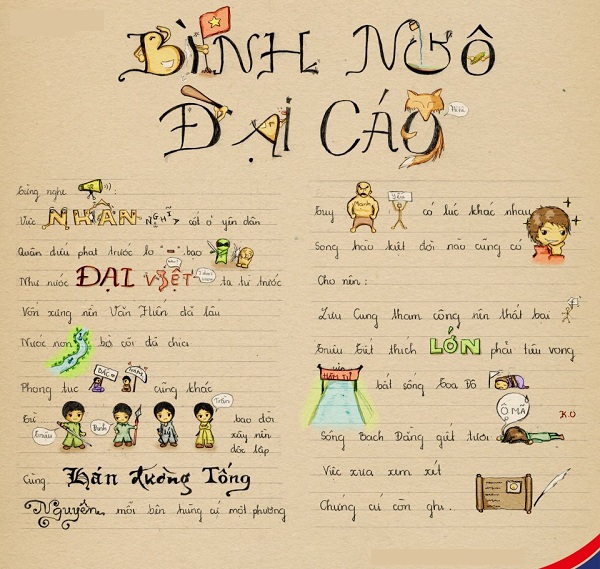 BÌNH NGÔ
ĐẠI CÁO
Từng nghe :
Việc NHÂN NGHĨ cốt ở yên dân
Quân điếu phạt trước lo "-" bạo
Như nước ĐẠI VIỆT ta từ trước
Vốn xưng nền Văn Hiến đã lâu
Nước non bờ cõi đã chia
Phong tục BẮC NAM cũng khác
Từ Triệu Đinh Trần bao đời
xây nền
độc lập
Cùng Hán Đường Tống
Nguyên mỗi bên hùng cứ một phương
Tuy Mạnh Yếu có lúc khác nhau
Song hào kiệt đời nào cũng có
Cho nên :
Lưu Cung tham công nên thất bại
Triệu Tiết thích LỚN phải tiêu vong
HÀM TỬ bắt sống Toa Đô
Sông Bạch Đằng giết tươi Ô MÃ K.O
Việc xưa xem xét
Chứng cứ còn ghi.